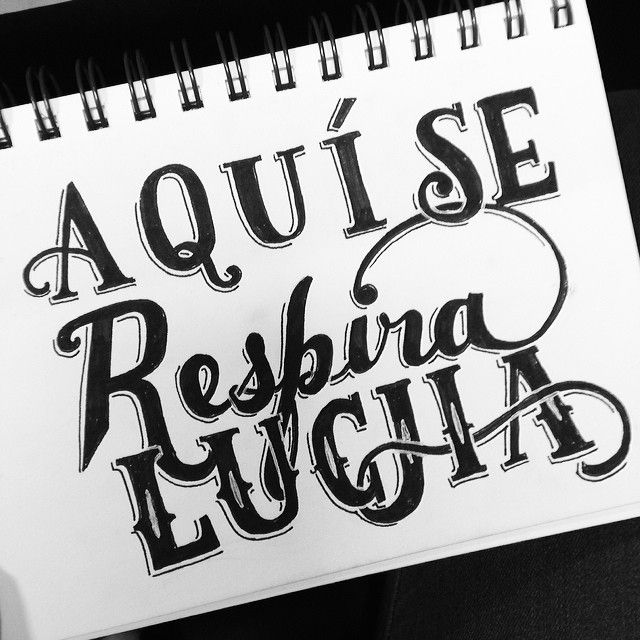 AQUÍ SE
Respira
LUCHA